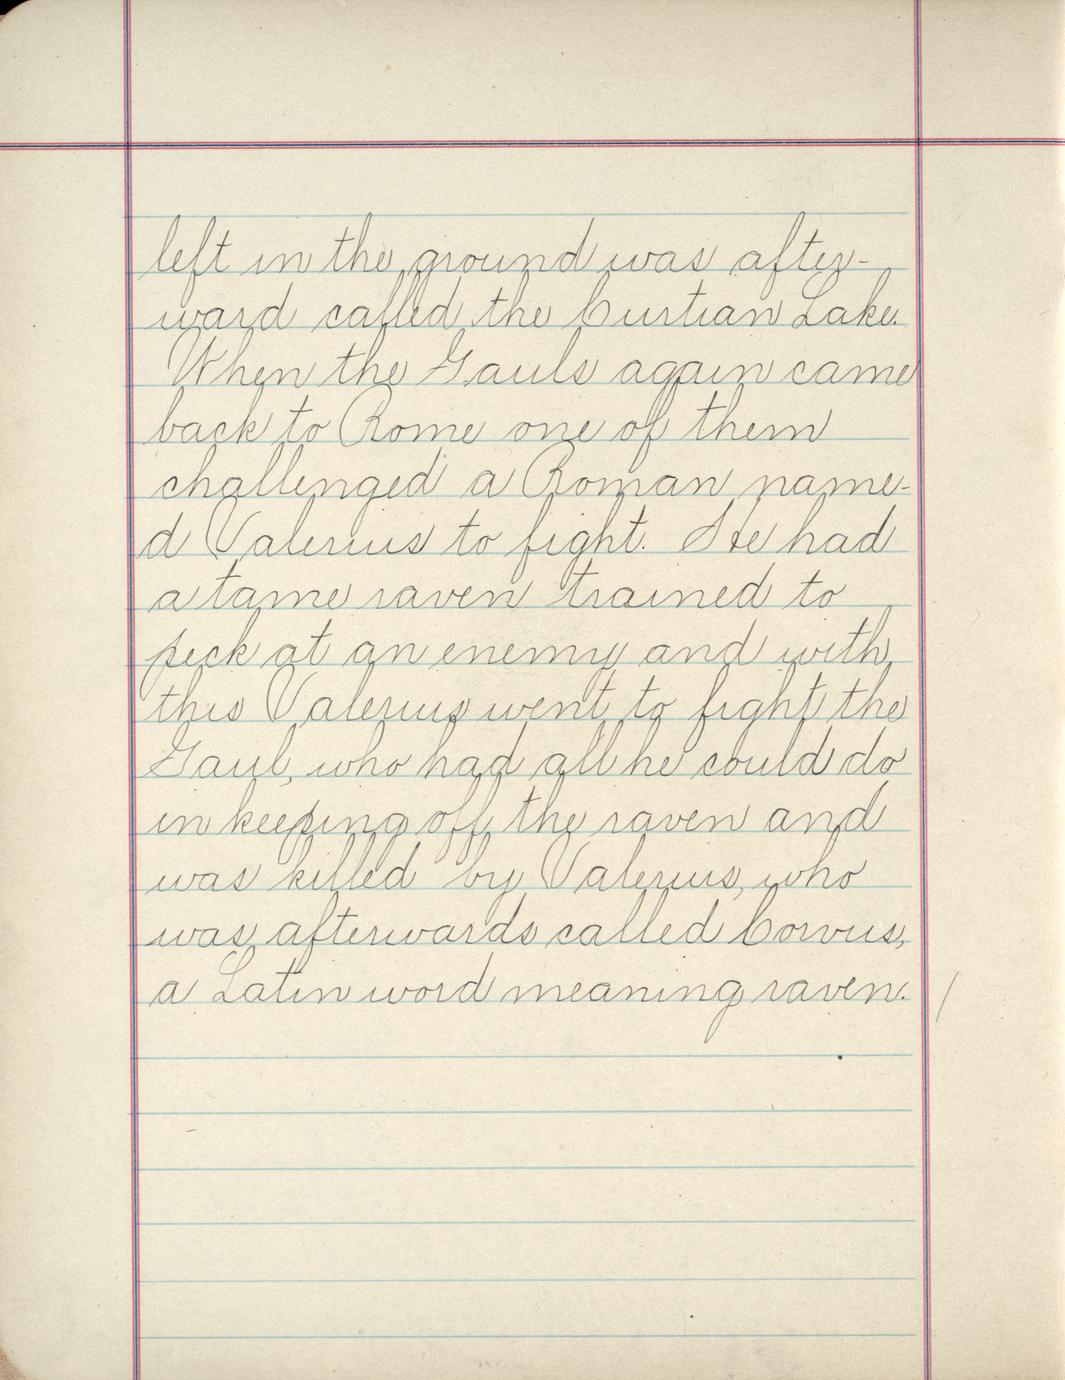 left in the ground was after-
ward called the Curtian Lake.
When the Gauls again came
back to Rome one of them
challenged a Roman name-
d Valerius to fight. He had
a tame raven trained to
peck at an enemy and with
this Valerius went to fight the
Gaul, who had all he could do
in keeping off the raven and
was killed by Valerius, who
was afterwards called Corvus,
a Latin word meaning raven.